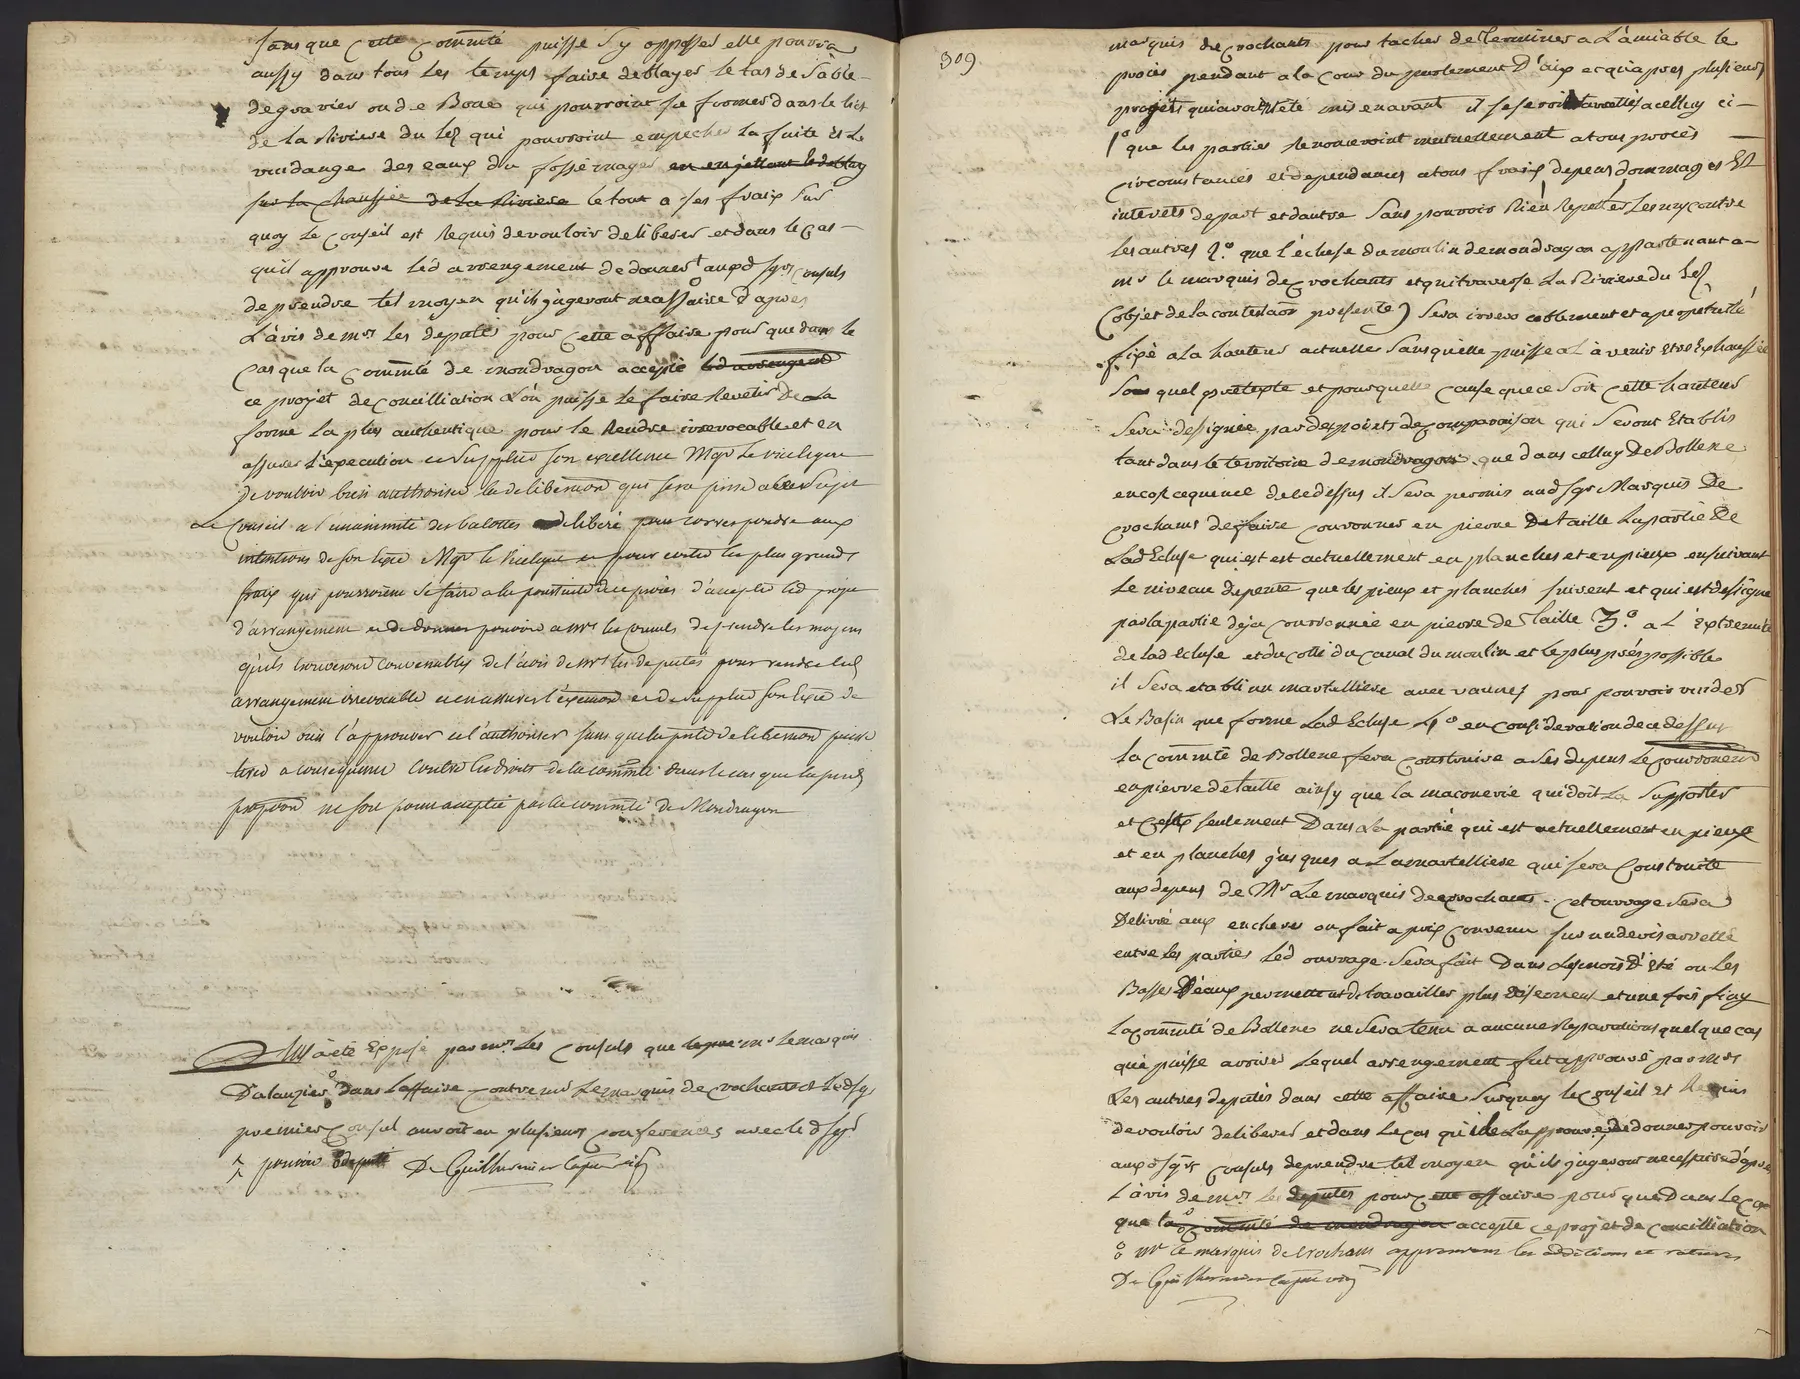 sans que cette comm̃té puisse s'y opposer elle pourra
aussy dans tous les temps faire deblayer le tas de sable
de gravier ou de Boue qui pourroint se former dans le lict
de la Riviere du Lez qui pourroint empecher la fuite et le
vuidange des eaux du fossé mayre en en jettant le deblay
sur la chaussée de la Riviere le tout a ses fraix sur
quoy le conseil est Requis de vouloir deliberer et dans le cas
qu'il approuve led arrengement de donner aux d srs consuls
de prendre tel moyen qu'ils jugeront necessaire d'apres
L'avis de mrs les deputés pour cette affaire pour que dans le
cas que la comm̃té de mondragon accepte led arrengemt
ce projet de concilliation L'on puisse le faire Revetir De La
forme La plus authentique pour le Rendre irrevocable et en
assurer l'execution et supplier son excellence Mgr le vicelegat
de vouloir bien authoriser la deliberaõn qui sera prise a ce sujet
Le Conseil a l'unanimité des balottes a deliberé pour correspondre aux
intentions de son Exce Mgr le vicelegat et pour eviter les plus grands
fraix qui pourroient se faire a la poursuite de ce procès d'accepter led projet
d'arrangement et de donner pouvoir a mrs les consuls de prendre les moyens
qu'ils trouveront convenables de l'avis de mrs les deputés pour rendre led
arrangement irrevocable et en assurer l'execuon et de supplier son Exce de
vouloir bien l'approuver et l'authoriser sans que la pnte deliberaõn puisse
tirer a consequence contre les droits de la comm̃té dans le cas que la pnte
propõon ne soit point acceptée par la comm̃té de Mondragon
Plus a été Exposé par mrs Les Consuls que mr le marquis
D'alauzier dans L'affaire contre mr Le marquis de crochants et led sr
premier consul auroit eu plusieurs conferences avec led sgr
pouvoir deputé De Guilhermier
309
marquis de crochants pour tacher de Terminer a L'amiable le
procès pendant a la Cour du parlement D'aix et qu'apres plusieurs
projets qui avoint eté mis en avant il se seroit arrettés a celluy ci
1° que les parties Renonceroint mutuellement a tous procès
circonstances et dependances a tous fraix depens dommages Et
interets de part et d'autre sans pouvoir Rien Repetter Les uns contre
Les autres 2° que L'écluse du moulin de mondragon appartenant a
mr le marquis de Crochants et qui traverse La Riviere du Lez
(objet de la contestaõn presente) sera irrevocablement et a perpetuité
fixé a la hauteur actuelle sans qu'elle puisse a L'avenir etre Exhaussée
sous quel pretexte et pour quelle cause que ce soit cette hauteur
sera designée par des points de comparaison qui seront Etablis
tant dans le territoire de mondragon que dans celluy De Bollene
en consequence de ce dessus il sera permis aud sgr Marquis De
crochans de faire couronner en pierre De taille La partie De
Lad Ecluse qui est est actuellement en planches et en pieux en suivant
Le niveau de pente que les pieux et planches suivent et qui est designé
par la partie deja couronnée en pierre de Taille 3° a L'Extremité
de Lad Ecluse et du cotté du canal du moulin et le plus près possible
il sera etabli un martelliere avec vannes pour pouvoir vuider
Le Basin que forme Lad Ecluse 4° en consideration de ce dessus
La comm̃té de Bollene fera construire a ses depens Le couronemt
en pierre de taille ainsy que la maconerie qui doit La supporter
et ce seulement Dans La partie qui est actuellement en pieux
et en planches jusques a La martelliere qui sera Construite
aux depens de Mr Le marquis de crochants cet ouvrage sera
Delivré aux encheres ou fait a prix convenu sur un devis arretté
entre les parties Led ouvrage sera fait Dans Les mois D'été ou Les
Basses D'eaux permettent de travailler plus Aisement et une fois finy
La comm̃té de Bollene ne sera tenu a aucune Reparations quel que cas
qui puisse arriver Lequel arrengement fut approuvé par mrs
Les autres deputés dans cette affaire surquoy le conseil est Requis
de vouloir deliberer et dans Le cas qu'il L'approuve de donner pouvoir
aux d srs consuls de prendre tel moyen qu'ils jugeront necessaire d'apres
L'avis de mrs les deputés pour cette affaire pour que Dans Le cas
que la comm̃té de mondragon accepte ce projet de concilliation
mr le marquis de crochans approuvant les additions et ratures
De Guilhermier